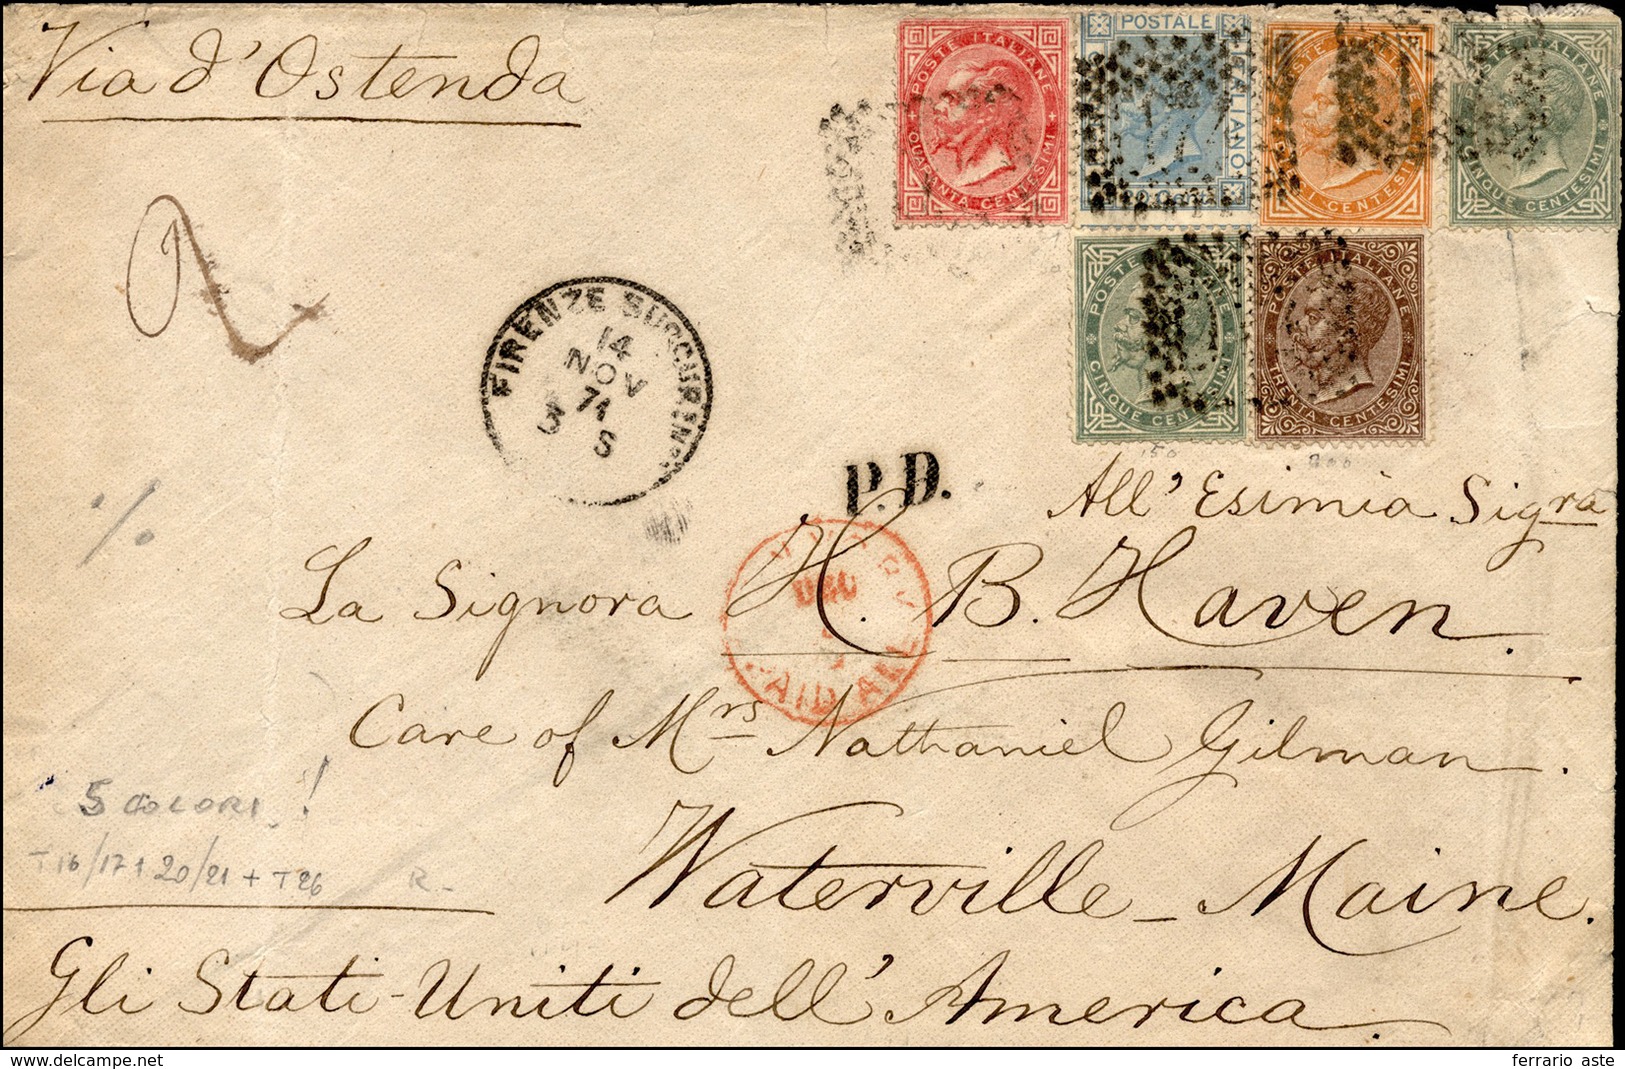 Via d'Ostenda
POSTE ITALIANE
QUARANTA CENTESIMI
POSTALE
ITALIANO
20 C. 20
POSTE ITALIANE
DIECI CENTESIMI
POSTE ITALIANE
CINQUE CENTESIMI
POSTE ITALIANE
CINQUE CENTESIMI
POSTE ITALIANE
TRENTA CENTESIMI
2
FIRENZE SUCCURSALE
14
NOV
71
3 S
150
200
P.D.
All' Esimia Sigra
La Signora H. B. Haven.
NEW YORK
DEC
PAID ALL
Care of Mrs Nathaniel Gilman.
5 COLORI !
T 16/17 + 20/21 + T26 R-
Waterville - Maine.
Gli Stati-Uniti dell' America.
delcampe.net
ferrario aste